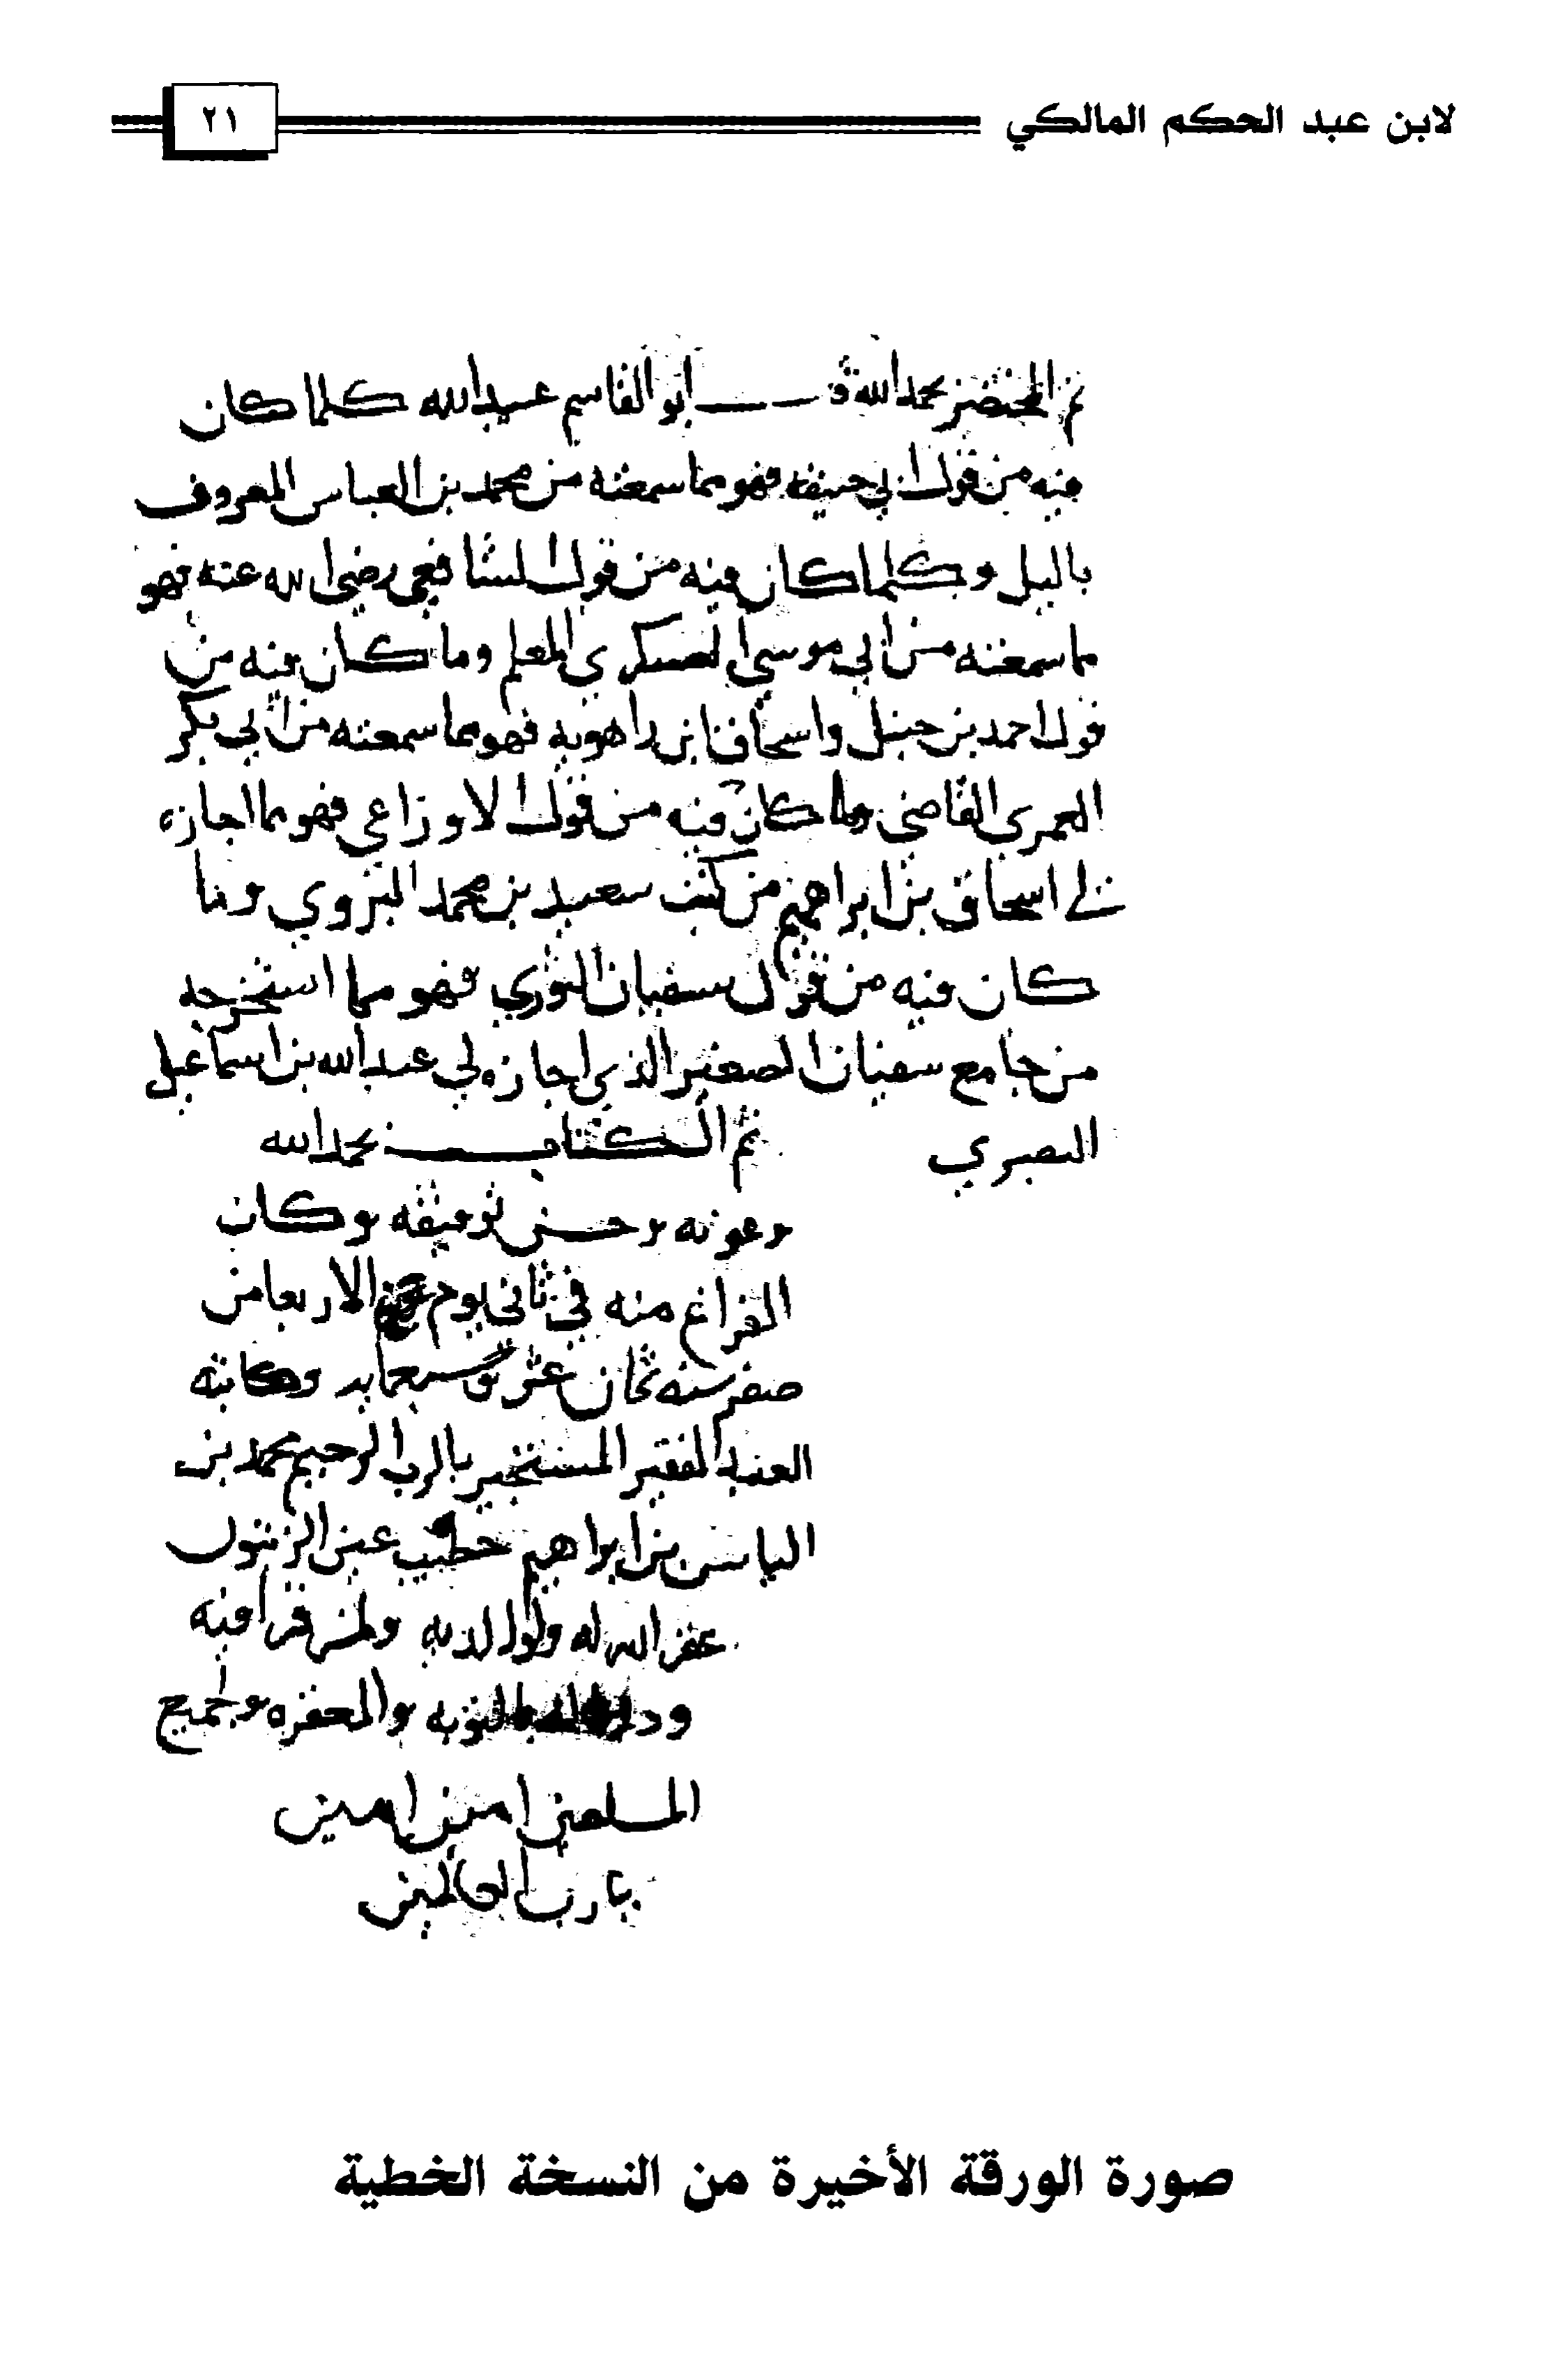 لابن عبد الحكم المالكي
٢١
تم المختصر بحمد الله قـــــــال ابو القاسم عبيد الله كلما كان
فيه من قول ابي حنيفه فهو مما سمعته من محمد بن العباس المعروف
بالبل وكلما كان فيه من قول الشافعي رضي الله عنه فهو
مما سمعته من ابي موسى العسكري المعلم وما كان فيه من
قول احمد بن حنبل واسحاق بن راهويه فهو مما سمعته من ابي بكر
العمري القاضي وما كان فيه من قول الاوزاعي فهو مما اجازه
لي اسحاق بن ابراهيم من كتب سعيد بن محمد البيروي وما
كان فيه من قول سفيان الثوري فهو مما استخرجه
من جامع سفيان الصغير الذي اجازه لي عبد الله بن اسماعيل
البصري
تم الكتاب بحمد الله
وعونه وحسن توفيقه وكان
الفراغ منه في ثاني يوم الاربعا من
صفر سنه ثمان عشر وسبعمايه وكاتبه
العبد الفقير المستجير بالرب الرحيم محمد بن
الياس بن ابراهيم خطيب عين الزيتون
غفر الله له ولوالديه ولمن قرا فيه
بالتوبه والمغفره ولجميع
المسلمين امين امين
يا رب العالمين
صورة الورقة الأخيرة من النسخة الخطية